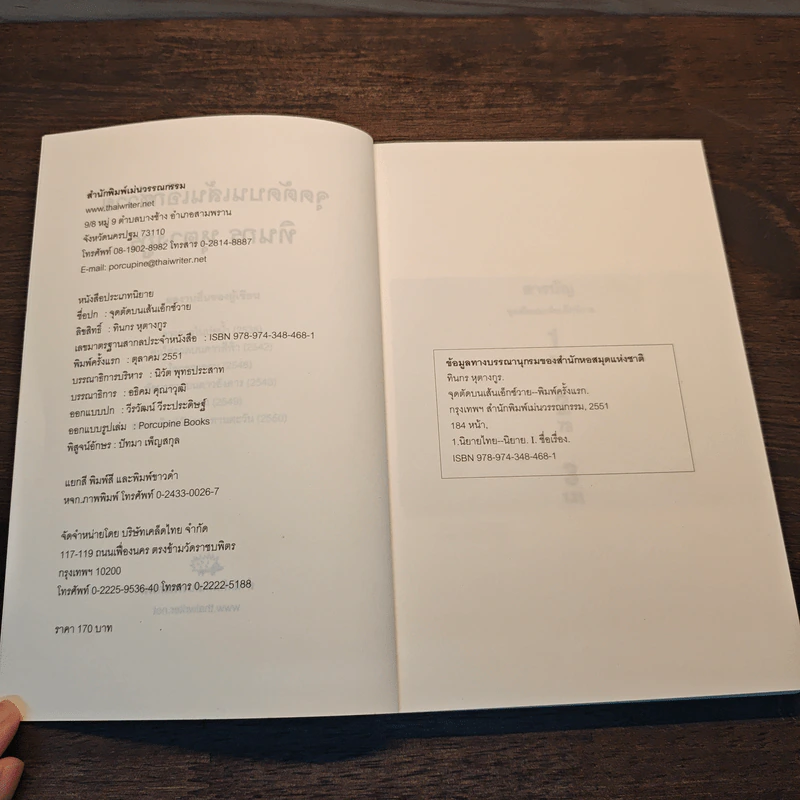 สำนักพิมพ์เม่นวรรณกรรม
www.thaiwriter.net
9/8 หมู่ 9 ตำบลบางช้าง อำเภอสามพราน
จังหวัดนครปฐม 73110
โทรศัพท์ 08-1902-8982 โทรสาร 0-2814-8887
E-mail: porcupine@thaiwriter.net
หนังสือประเภทนิยาย
ชื่อปก : จุดตัดบนเส้นเอ็กซ์วาย
ลิขสิทธิ์ : ทินกร หุตางกูร
เลขมาตรฐานสากลประจำหนังสือ : ISBN 978-974-348-468-1
พิมพ์ครั้งแรก : ตุลาคม 2551
บรรณาธิการบริหาร : นิวัต พุทธประสาท
บรรณาธิการ : อธิคม คุณาวุฒิ
ออกแบบปก : วีรวัฒน์ วีระประดิษฐ์
ออกแบบรูปเล่ม : Porcupine Books
พิสูจน์อักษร : ปัทมา เพ็ญสกุล
แยกสี พิมพ์สี และพิมพ์ขาวดำ
หจก.ภาพพิมพ์ โทรศัพท์ 0-2433-0026-7
จัดจำหน่ายโดย บริษัทเคล็ดไทย จำกัด
117-119 ถนนเฟื่องนคร ตรงข้ามวัดราชบพิตร
กรุงเทพฯ 10200
โทรศัพท์ 0-2225-9536-40 โทรสาร 0-2222-5188
ราคา 170 บาท
ข้อมูลทางบรรณานุกรมของสำนักหอสมุดแห่งชาติ
ทินกร หุตางกูร.
จุดตัดบนเส้นเอ็กซ์วาย--พิมพ์ครั้งแรก.
กรุงเทพฯ สำนักพิมพ์เม่นวรรณกรรม, 2551
184 หน้า.
1.นิยายไทย--นิยาย. I. ชื่อเรื่อง.
ISBN 978-974-348-468-1